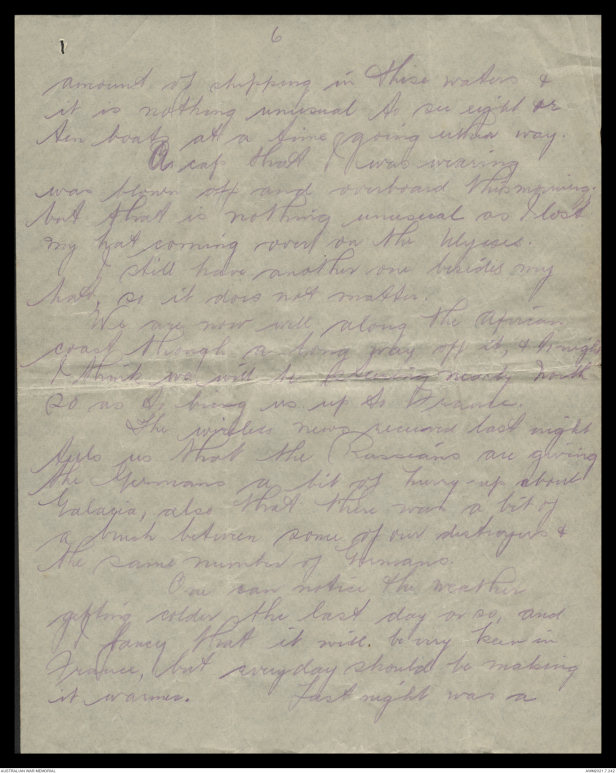 6
amount of shipping in these waters &
it is nothing unusual to see eight or
ten boats at a time going either way.
A cap that I was wearing
was blown off and overboard this morning,
but that is nothing unusual as I lost
my hat coming over on the Ulysses.
I still have another one besides my
hat, so it does not matter.
We are now well along the African
coast though a long way off it, & tonight
I think we will be steering nearly North
so as to bring us up to France.
The wireless news received last night
tells us that the Russians are giving
the Germans a bit of hurry-up about
Galacia, also that there was a bit of
a brush between some of our destroyers &
the same number of Germans.
One can notice the weather
getting colder the last day or so, and
I fancy that it will be very keen in
France, but everyday should be making
it warmer. Last night was a
AUSTRALIAN WAR MEMORIAL